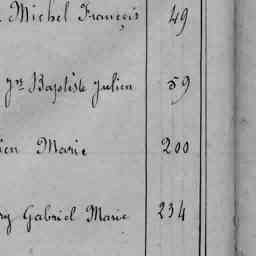 Michel François 49
Jn Baptiste Julien 59
ien Marie 200
ry Gabriel Marie 234